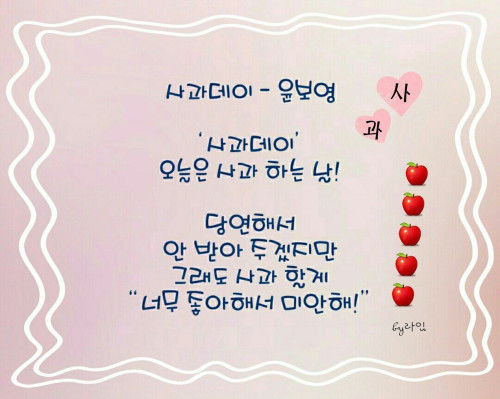 사과데이 - 윤보영
사
과
‘사과데이’
오늘은 사과 하는 날!
당연해서
안 받아 두겠지만
그래도 사과 할게
“너무 좋아해서 미안해!”
By라임